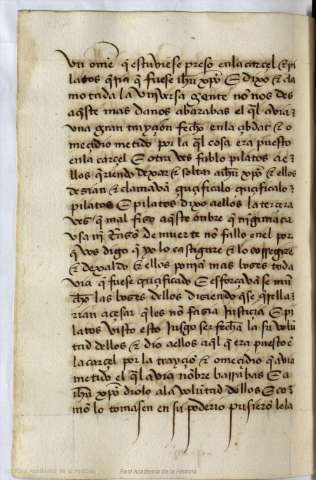 un ome q estuviese preso en la carcel & pi
latos q̃ria q̃ fuese ihu xp̃o & dixo & cla
mo toda la universa gente no nos des
aqste mas danos abarabas el ql avia
una gran trayçion fecho en la çbdat & o
meçidio metido por la ql cosa era puesto
en la carçel & otra ves fablo pilatos a e
llos qriendo dexar & soltar a ihu xp̃o & ellos
desian & clamavã quçificalo quçificalo
pilatos & pilatos dixo a ellos la terçera
ves q mal fiso aqste onbre q ninguna ca
usa ni de muerte no fallo en el por
q vos digo q yo lo castigare & lo corregire
& dexaldo & ellos ponian mas boses toda
via q fuese quçificado & esforçavã se mu
cho las boses dellos disiendo qse
rian a çesar q les nõ fasia justiçia & pi
latos visto esto jusgo ser fecha la su volũ
tad dellos & dio a ellos aql q era puesto ẽ
la carçel por la trayçiõ & omeçidio q avia
metido el ql avia nõbre barrabas & a
ihu xp̃o diolo a la volũtad dellos & co
mo lo tomasen en su poderio pusierõ le la
Real Academia de la Historia